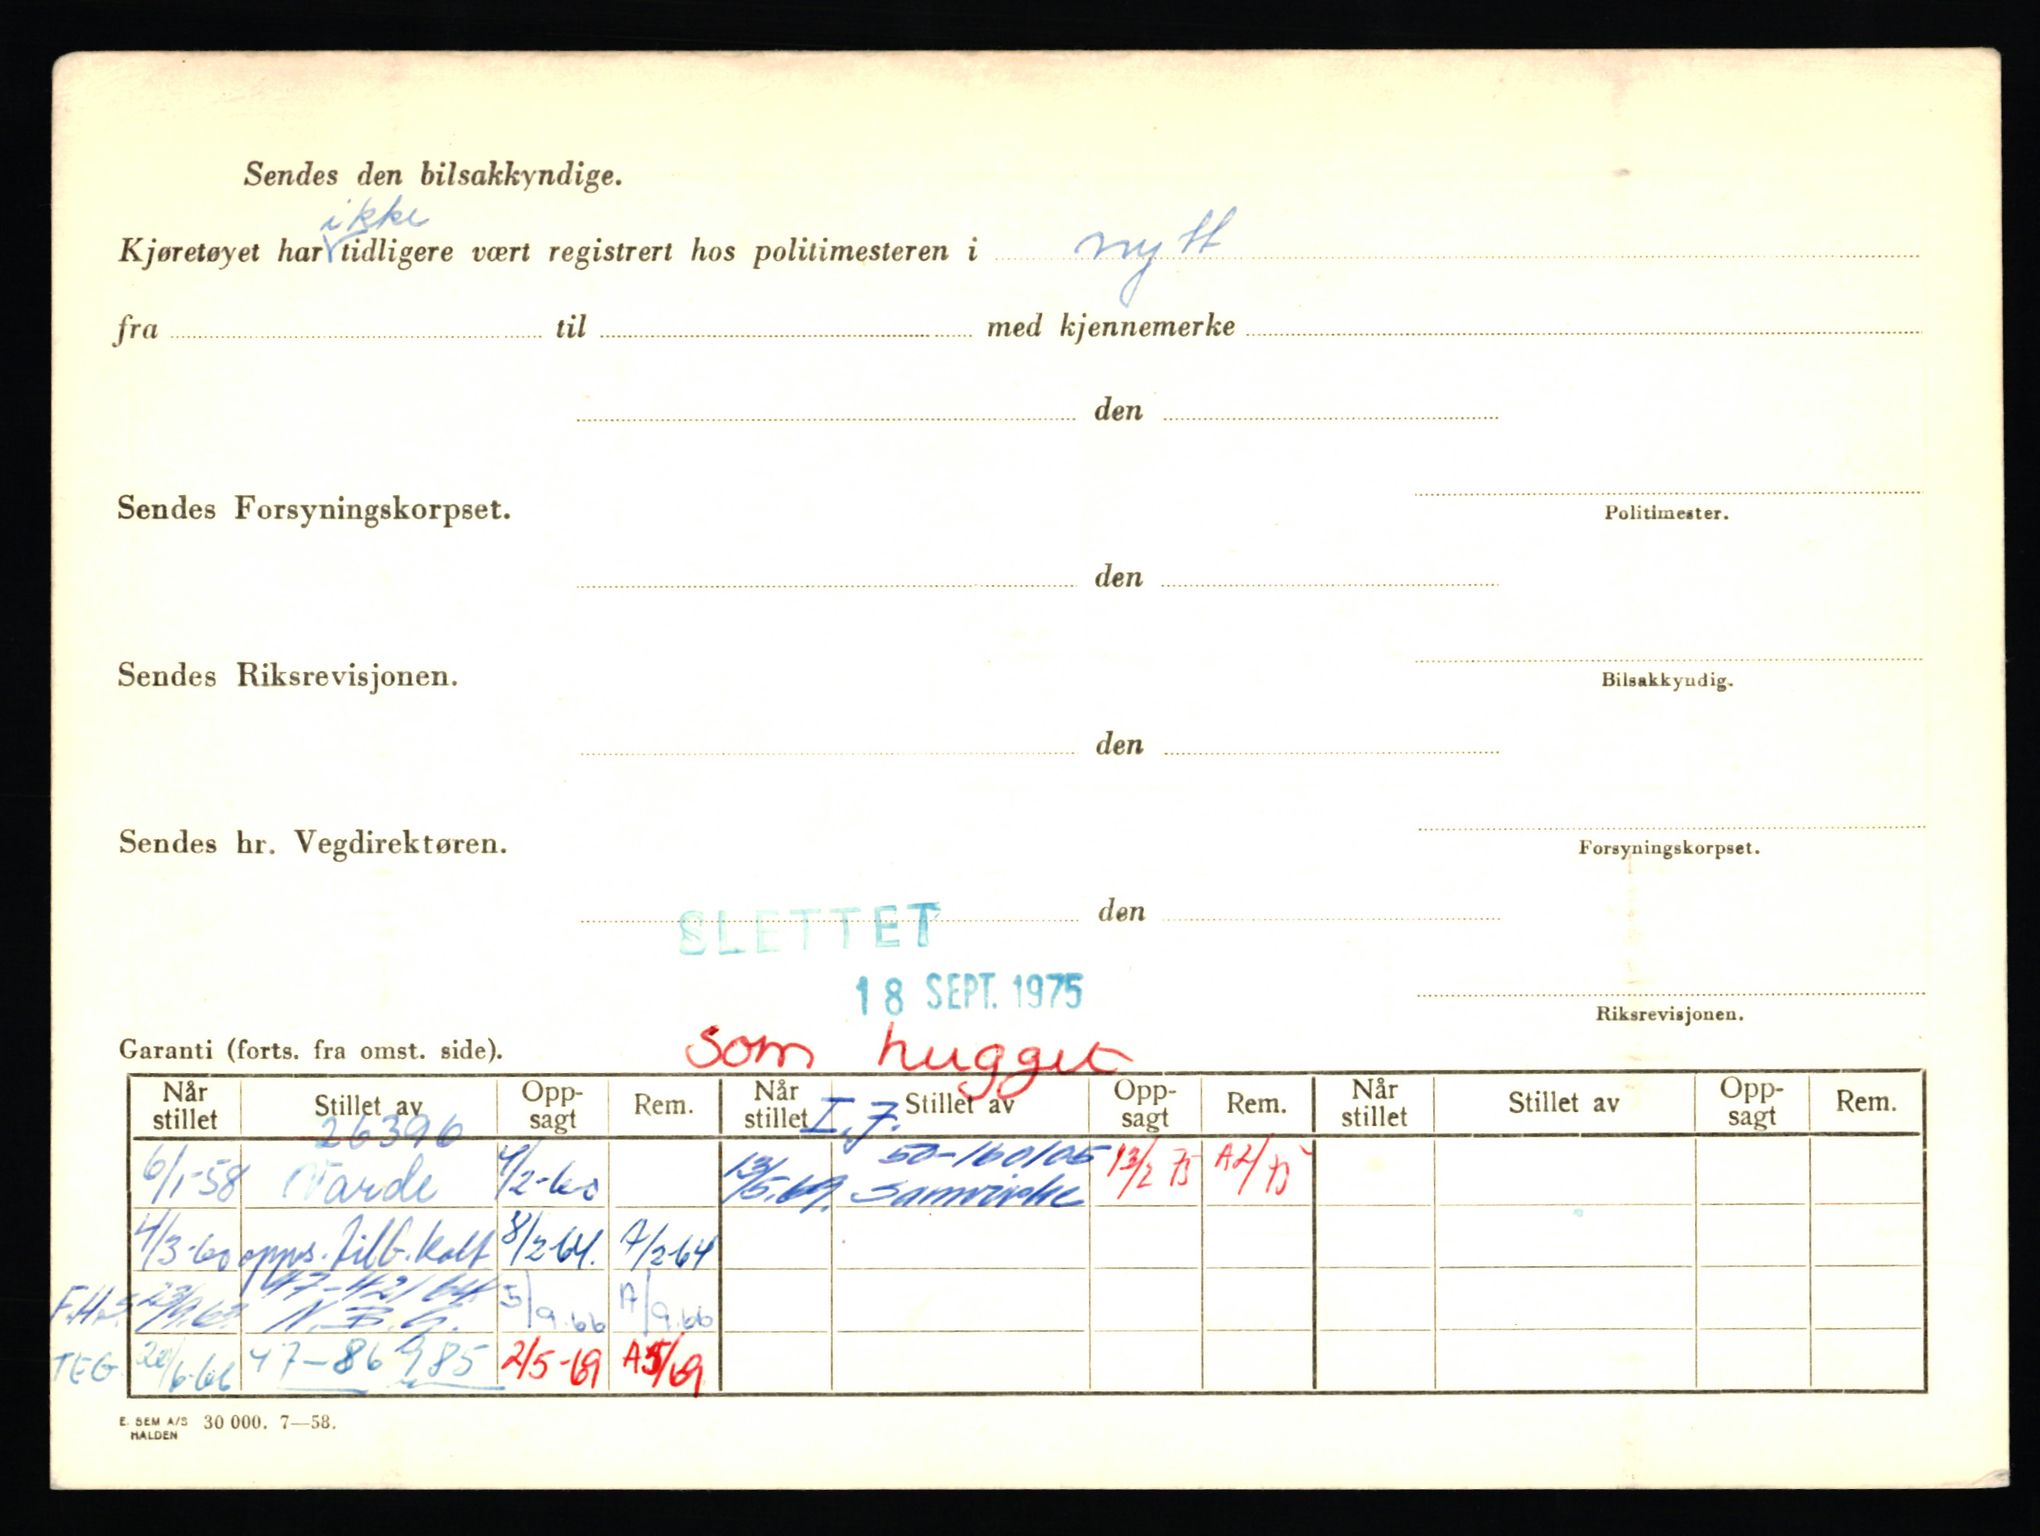 Sendes den bilsakkyndige.
ikke
Kjøretøyet har tidligere vært registrert hos politimesteren i nytt
fra til med kjennemerke
den
Sendes Forsyningskorpset.
Politimester.
den
Sendes Riksrevisjonen.
Bilsakkyndig.
den
Sendes hr. Vegdirektøren.
Forsyningskorpset.
SLETTET den
18 SEPT. 1975
Riksrevisjonen.
Garanti (forts. fra omst. side). som hugget
Når stillet Stillet av Opp-sagt Rem. Når stillet Stillet av Opp-sagt Rem. Når stillet Stillet av Opp-sagt Rem.
26396 I.F.
6/1-58 Varde 4/2-60 13/5.69. 50-160105 Samvirke 13/2 75 A2/75
4/3-60 opps. tilb. kalt 8/2-64. A/2-64
47-421
N.B.G. 5/9.66 A/9.66
TEG 20/6-66 47-86985 2/5-69 A5/69
E. SEM A/S HALDEN 30 000. 7—58.